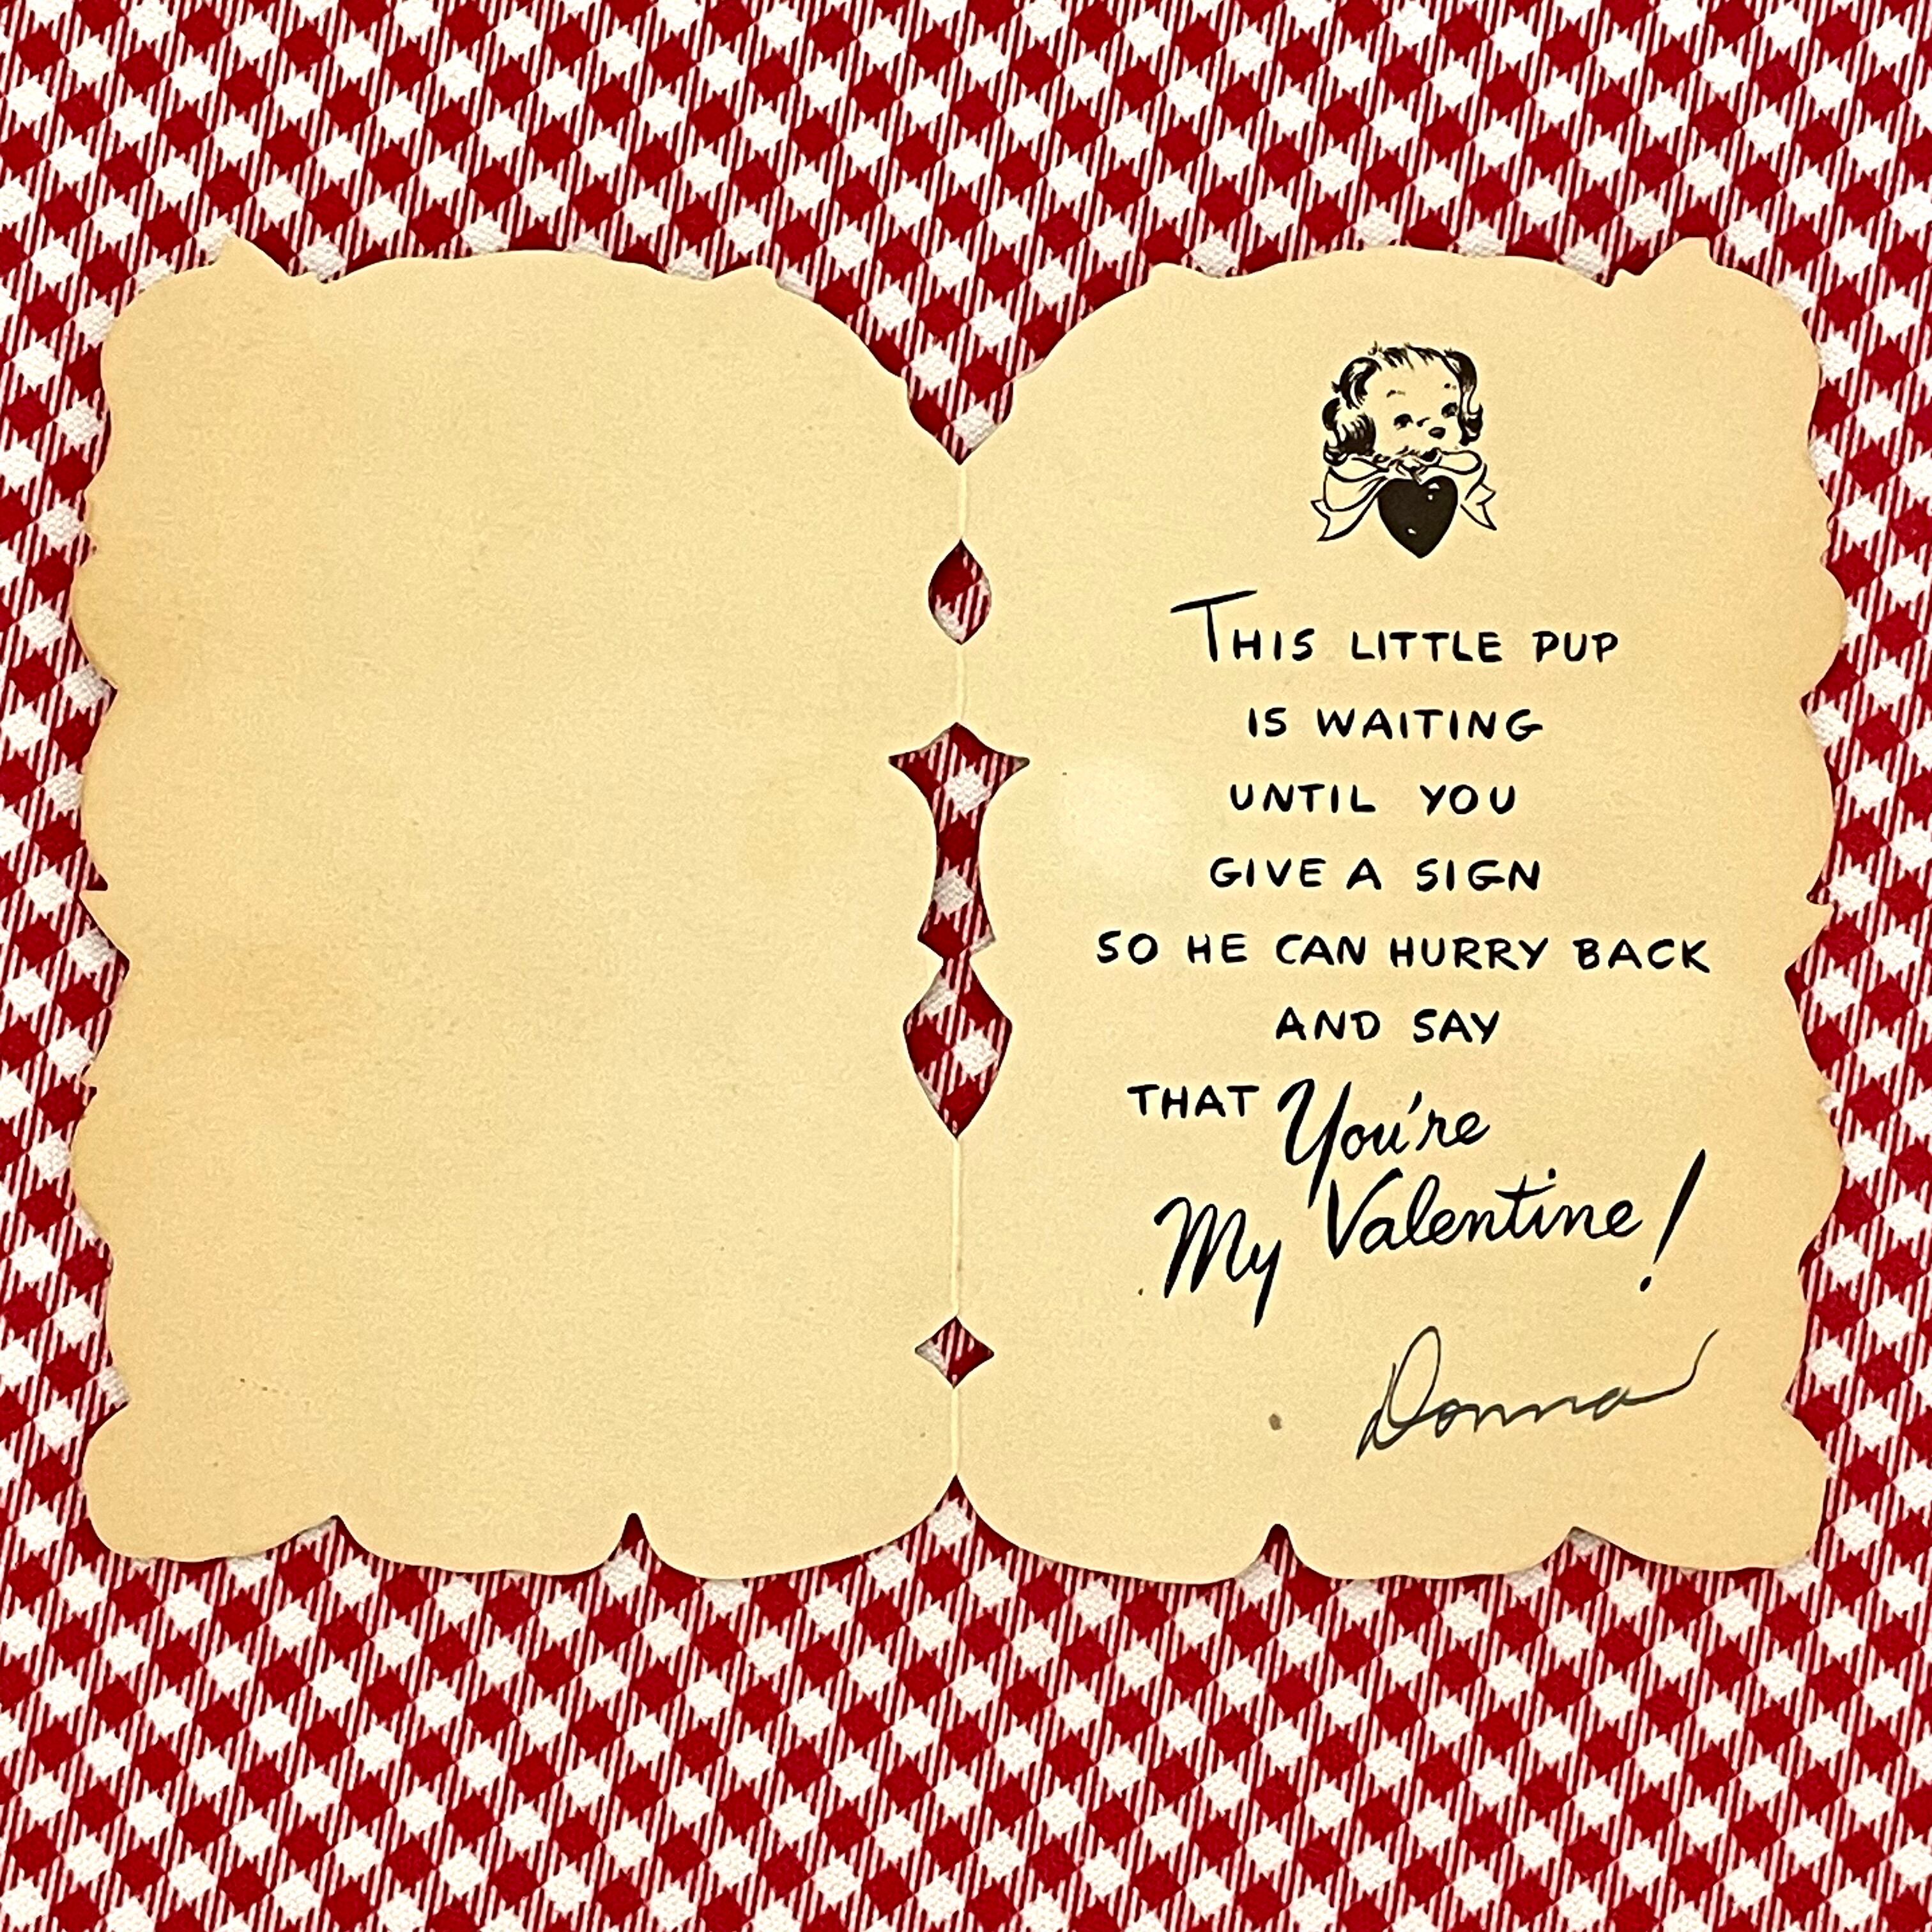 THIS LITTLE PUP
IS WAITING
UNTIL YOU
GIVE A SIGN
SO HE CAN HURRY BACK
AND SAY
THAT You're
My Valentine!
Donna